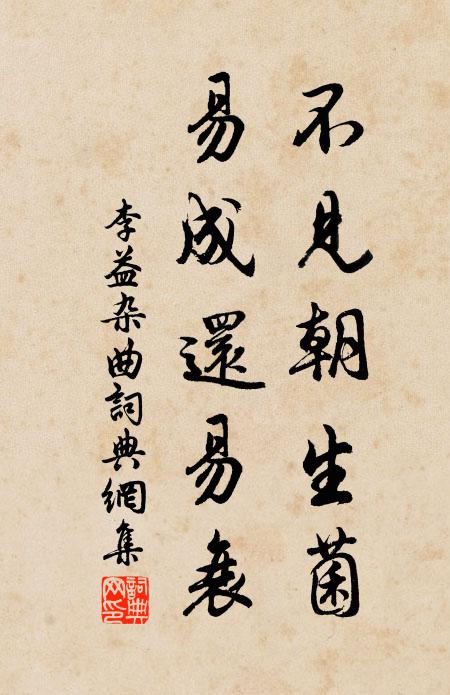 不見朝生菌
易成還易衰
李益杂曲詞典網集
詞典网印